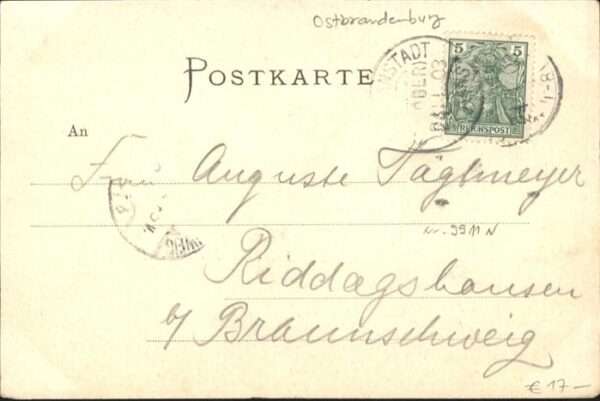 Ostbrandenburg
POSTKARTE
5 5
REICHSPOST
An
Frau Auguste Tagtmeyer
Nr. 9911 N
Riddagshausen
b/ Braunschweig
€ 17-